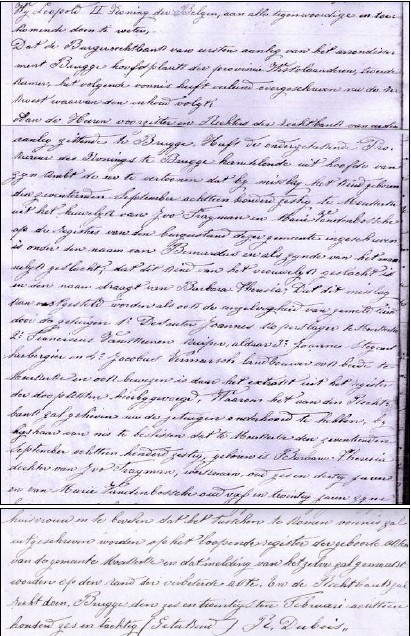 Wij Leopold II Koning der Belgen, aan alle tegenwoordige en toe-
komende doen te weten,
Dat de Burgerrechtbank van eersten aanleg van het arrondisse-
ment Brugge hoofdplaats der provincie Westvlaanderen, tweede
kamer, het volgende vonnis heeft verleend
waarvan den inhoud volgt:
Aan de Heeren voorzitter en Rechters der rechtbank van eersten
aanleg zittende te Brugge. Heeft de ondergeteekende Pro-
kureur des Konings te Brugge handelende uit hoofde van
zijn ambt de eer te vertoonen dat bij mislag het kind geboren
den zeventienden September achttien honderd zestig, te Moerkerke
uit het huwelijk van Ivo Traegman en Marie Vandenbossche
op de registers van den burgerstand dezer gemeente ingeschreven
is onder den naam van Bernardus en als zijnde van het man-
nelijk geslacht; dat dit kind van het vrouwelijk geslacht is
en den naam draagt van Barbara Theresia. Dat dit mislag
kan vastgesteld worden als ook de
door de getuigen 1° Desauter Joannes
2° Franciscus aldaar 3° Joannes
herbergier en 4° Jacobus Vermeersch landbouwer ook beide te
Moerkerke en ook bewezen is door het extrakt uit het register
der doopakten hierbijgevoegd. Waarom het aan den Recht-
bank zal gelieven na de getuigen onderhoord te hebben, bij
haar van nu te beslissen dat te Moerkerke den zeventienden
September achttien honderd zestig, geboren is Barbara Theresia
dochter van Ivo Traegman, werkman, oud zes en dertig jaren
en van Marie Vandenbossche oud vijf en twintig jaren zijne
huisvrouw en te bevelen dat het tusschen te komen vonnis zal
ingeschreven worden op het loopende register der geboorte akten
van de gemeente Moerkerke en dat melding van hetzelve zal gemaakt
worden op den rand der verbeterde akte. En de Rechtbank zal
recht doen, Brugge den zes en twintigsten Februari achttien
honderd zes en tachtig (Geteekend) R. Dubois,